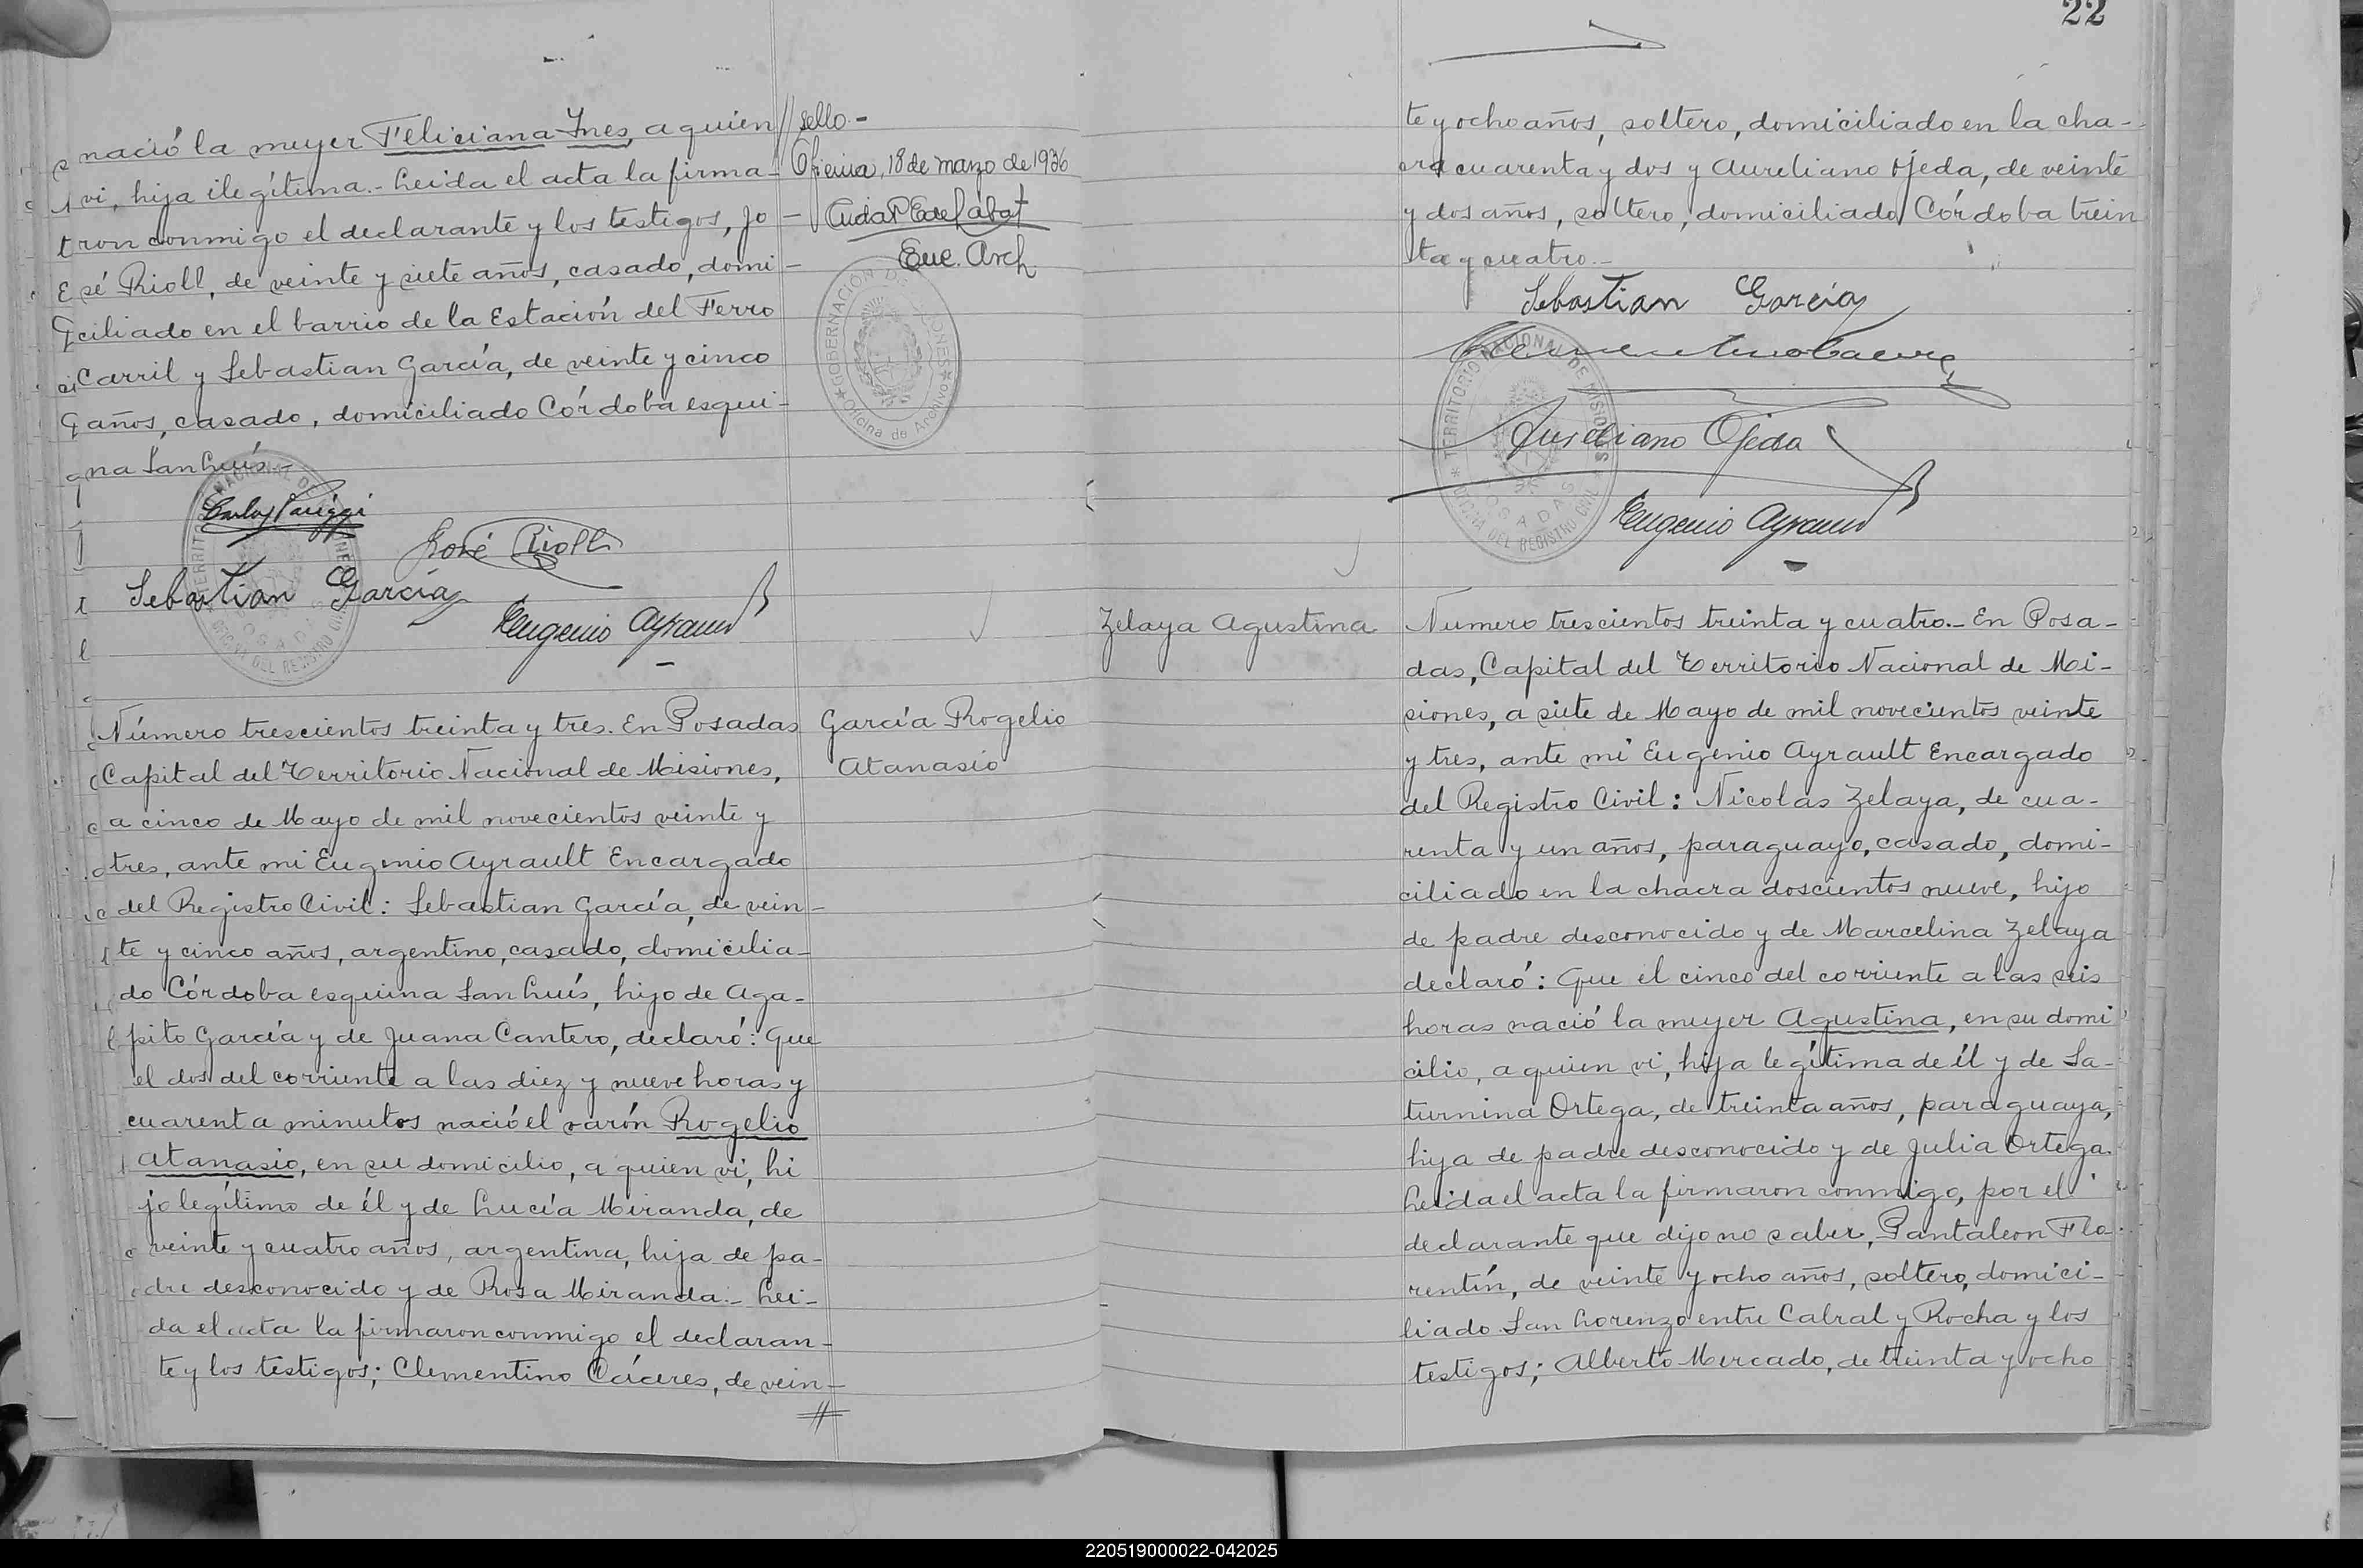 nació la muyer Feliciana Ines, a quien
vi, hija ilegítima.- Leida el acta la firma-
ron conmigo el declarante y los testigos, Jo-
sé Rioll, de veinte y siete años, casado, domi-
ciliado en el barrio de la Estación del Ferro
Carril y Sebastian García, de veinte y cinco
años, casado, domiciliado Córdoba esqui-
na San Luís.-
José Rioll
Sebastian García
Eugenio Ayrault
TERRITORIO NACIONAL DE MISIONES
OFICINA DEL REGISTRO CIVIL
POSADAS
// sello.-
Oficina, 18 de marzo de 1936
Enc. Arch.
GOBERNACION DE MISIONES
Oficina de Archivo
Número trescientos treinta y tres. En Posadas
Capital del Territorio Nacional de Misiones,
a cinco de Mayo de mil novecientos veinte y
tres, ante mi Eugenio Ayrault Encargado
del Registro Civil: Sebastian García, de vein-
te y cinco años, argentino, casado, domicilia-
do Córdoba esquina San Luís, hijo de Aga-
pito García y de Juana Cantero, declaró: Que
el dos del corriente a las diez y nueve horas y
cuarenta minutos nació el varón Rogelio
Atanasio, en su domicilio, a quien vi, hi
jo legítimo de él y de Lucía Miranda, de
veinte y cuatro años, argentina, hija de pa-
dre desconocido y de Rosa Miranda.- Lei-
da el acta la firmaron conmigo el declaran-
te y los testigos; Clementino Cáceres, de vein-
//
García Rogelio
Atanasio
22
te y ocho años, soltero, domiciliado en la cha-
cra cuarenta y dos y Aureliano Ojeda, de veinte
y dos años, soltero, domiciliado Córdoba trein
ta y cuatro.-
Sebastian García
Clementino Caceres
Aureliano Ojeda
Eugenio Ayrault
TERRITORIO NACIONAL DE MISIONES
OFICINA DEL REGISTRO CIVIL
POSADAS
Zelaya Agustina
Numero trescientos treinta y cuatro.- En Posa-
das, Capital del Territorio Nacional de Mi-
siones, a siete de Mayo de mil novecientos veinte
y tres, ante mi Eugenio Ayrault Encargado
del Registro Civil: Nicolas Zelaya, de cua-
renta y un años, paraguayo, casado, domi-
ciliado en la chacra doscientos nueve, hijo
de padre desconocido y de Marcelina Zelaya
declaró: Que el cinco del corriente a las seis
horas nació la muyer Agustina, en su domi
cilio, a quien vi, hija legítima de él y de Sa-
turnina Ortega, de treinta años, paraguaya,
hija de padre desconocido y de Julia Ortega.
Leida el acta la firmaron conmigo, por el
declarante que dijo no saber, Pantaleon Flo-
rentín, de veinte y ocho años, soltero, domici-
liado San Lorenzo entre Cabral y Rocha y los
testigos; Alberto Mercado, de treinta y ocho
220519000022-042025